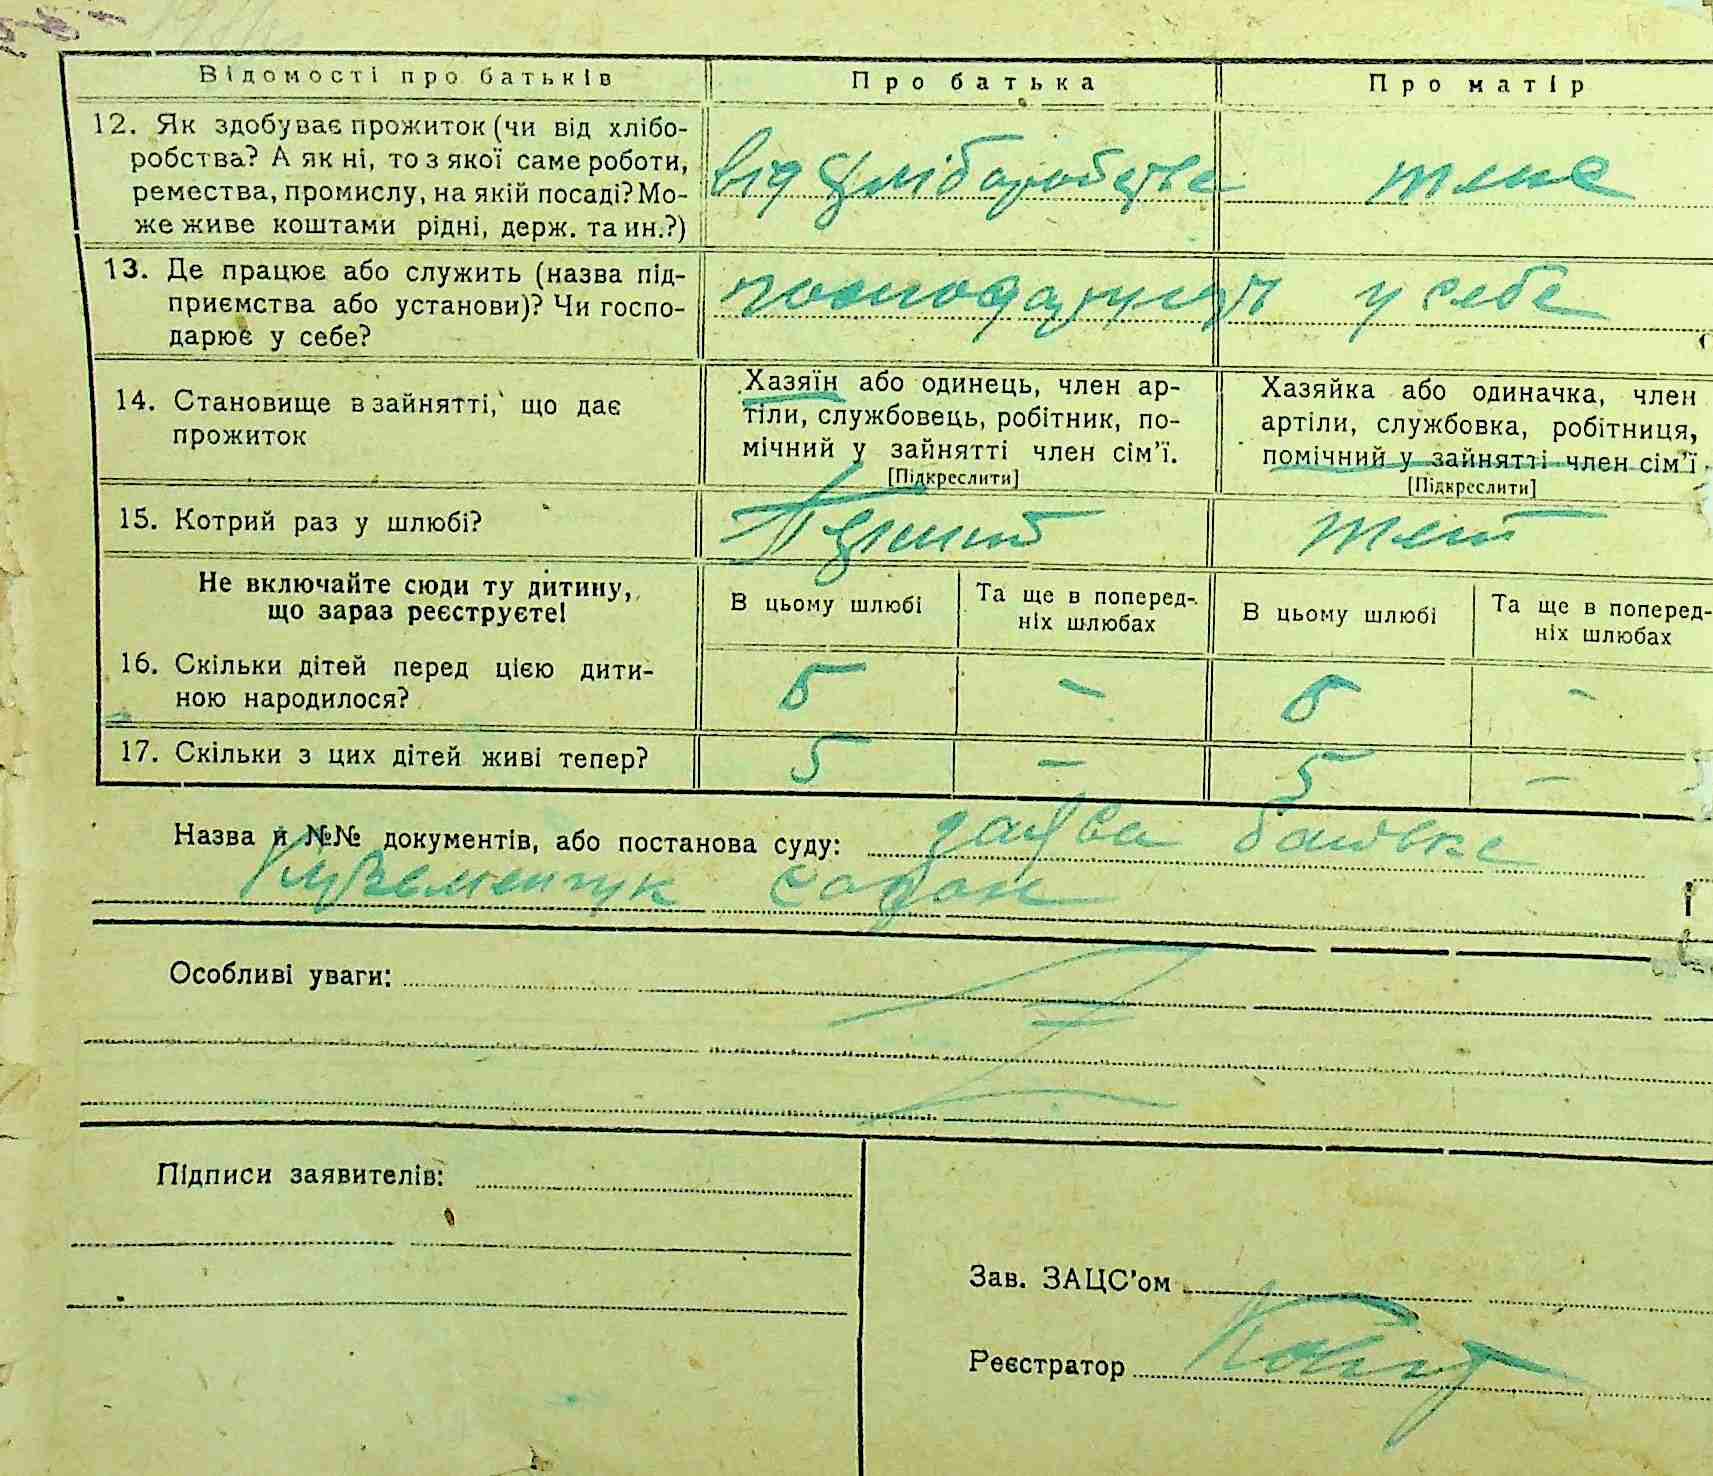 Відомості про батьків Про батька Про матір
12. Як здобуває прожиток (чи від хлібо-
робства? А як ні, то з якої саме роботи,
ремества, промислу, на якій посаді? Мо-
же живе коштами рідні, держ. та ин.?)
від хліборобства
теж
13. Де працює або служить (назва під-
приємства або установи)? Чи госпо-
дарює у себе?
у себе
14. Становище в зайнятті, що дає
прожиток
Хазяїн або одинець, член ар-
тіли, службовець, робітник, по-
мічний у зайнятті член сім'ї.
[Підкреслити]
Хазяйка або одиначка, член
артіли, службовка, робітниця,
помічний у зайнятті член сім'ї.
[Підкреслити]
15. Котрий раз у шлюбі?
Не включайте сюди ту дитину,
що зараз реєструєте!
В цьому шлюбі
Та ще в поперед-
ніх шлюбах
В цьому шлюбі
Та ще в поперед-
ніх шлюбах
16. Скільки дітей перед цією дити-
ною народилося?
5 – 5 –
17. Скільки з цих дітей живі тепер?
5 – 5 –
Назва й №№ документів, або постанова суду: заява батька
Особливі уваги:
Підписи заявителів:
Зав. ЗАЦС'ом
Реєстратор